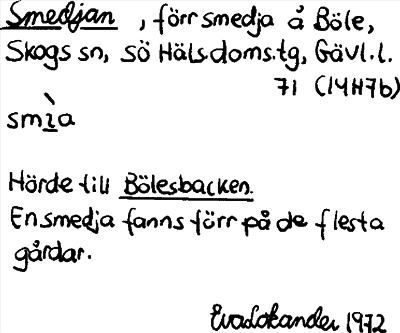 Smedjan, förr smedja å Böle,
Skogs sn, sö Häls.doms.tg, Gävl.l.
71 (14H7b)
smì̱a
Hörde till Bölesbacken.
En smedja fanns förr på de flesta
gårdar.
Eva Lokander 1972